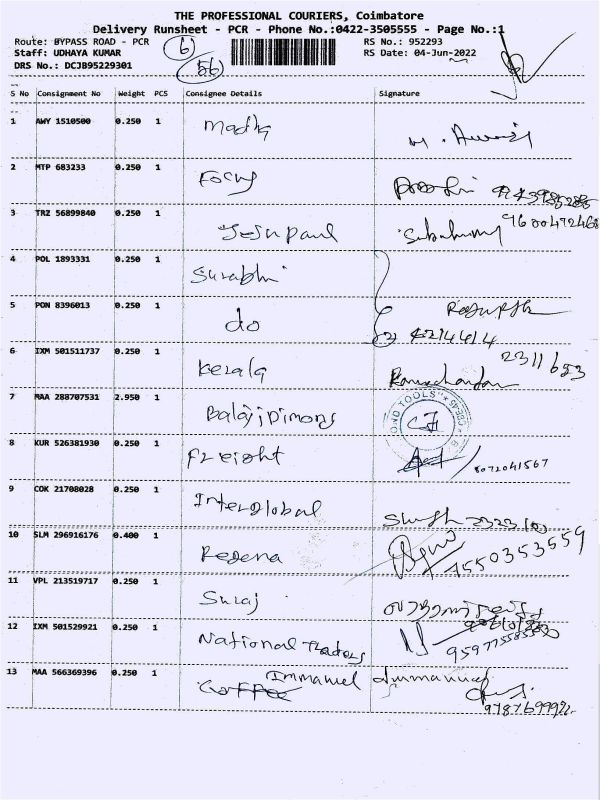 THE PROFESSIONAL COURIERS, Coimbatore
Delivery Runsheet - PCR - Phone No.:0422-3505555 - Page No.:1
Route: BYPASS ROAD - PCR RS No.: 952293
Staff: UDHAYA KUMAR RS Date: 04-Jun-2022
DRS No.: DCJB95229301
6
56
S No Consignment No Weight PCS Consignee Details Signature
1 AWY 1510500 0.250 1 madhu
2 MTP 683233 0.250 1 Focus
3 TRZ 56899840 0.250 1 Jesu paul
4 POL 1893331 0.250 1 Surabhi
5 PON 8396013 0.250 1 do 4214414
6 IXM 501511737 0.250 1 Kerala Ramachandan 2311653
7 MAA 288707531 2.950 1 Balaji Dimons
8 KUR 526381930 0.250 1 Freight 8072041567
9 COK 21708028 0.250 1 Interglobal
10 SLM 296916176 0.400 1 Regena 7550353559
11 VPL 213519717 0.250 1 Suraj
12 IXM 501529921 0.250 1 National Traders
13 MAA 566369396 0.250 1 Immanuel Immanuel
9787699922